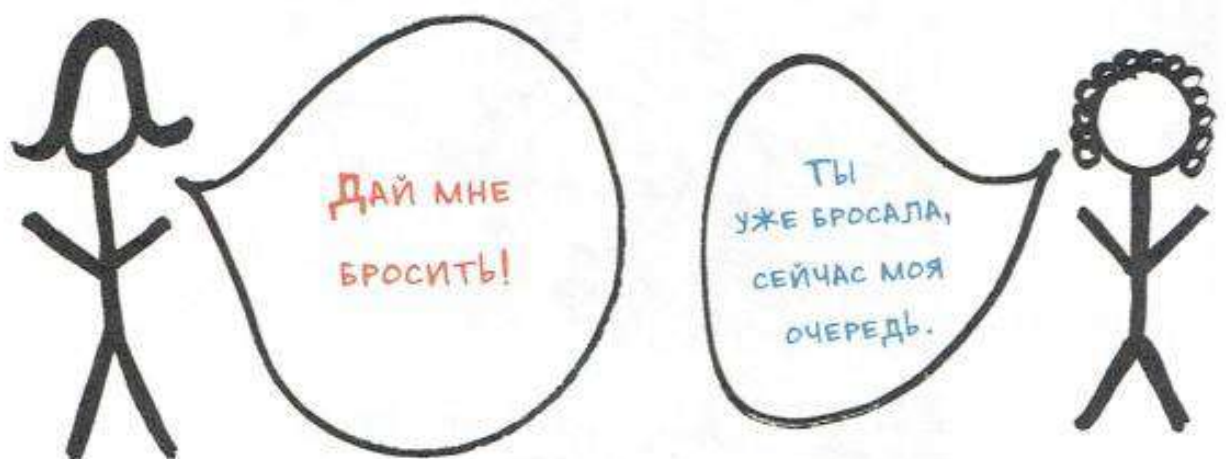 Дай мне
бросить!
Ты
уже бросала,
сейчас моя
очередь.